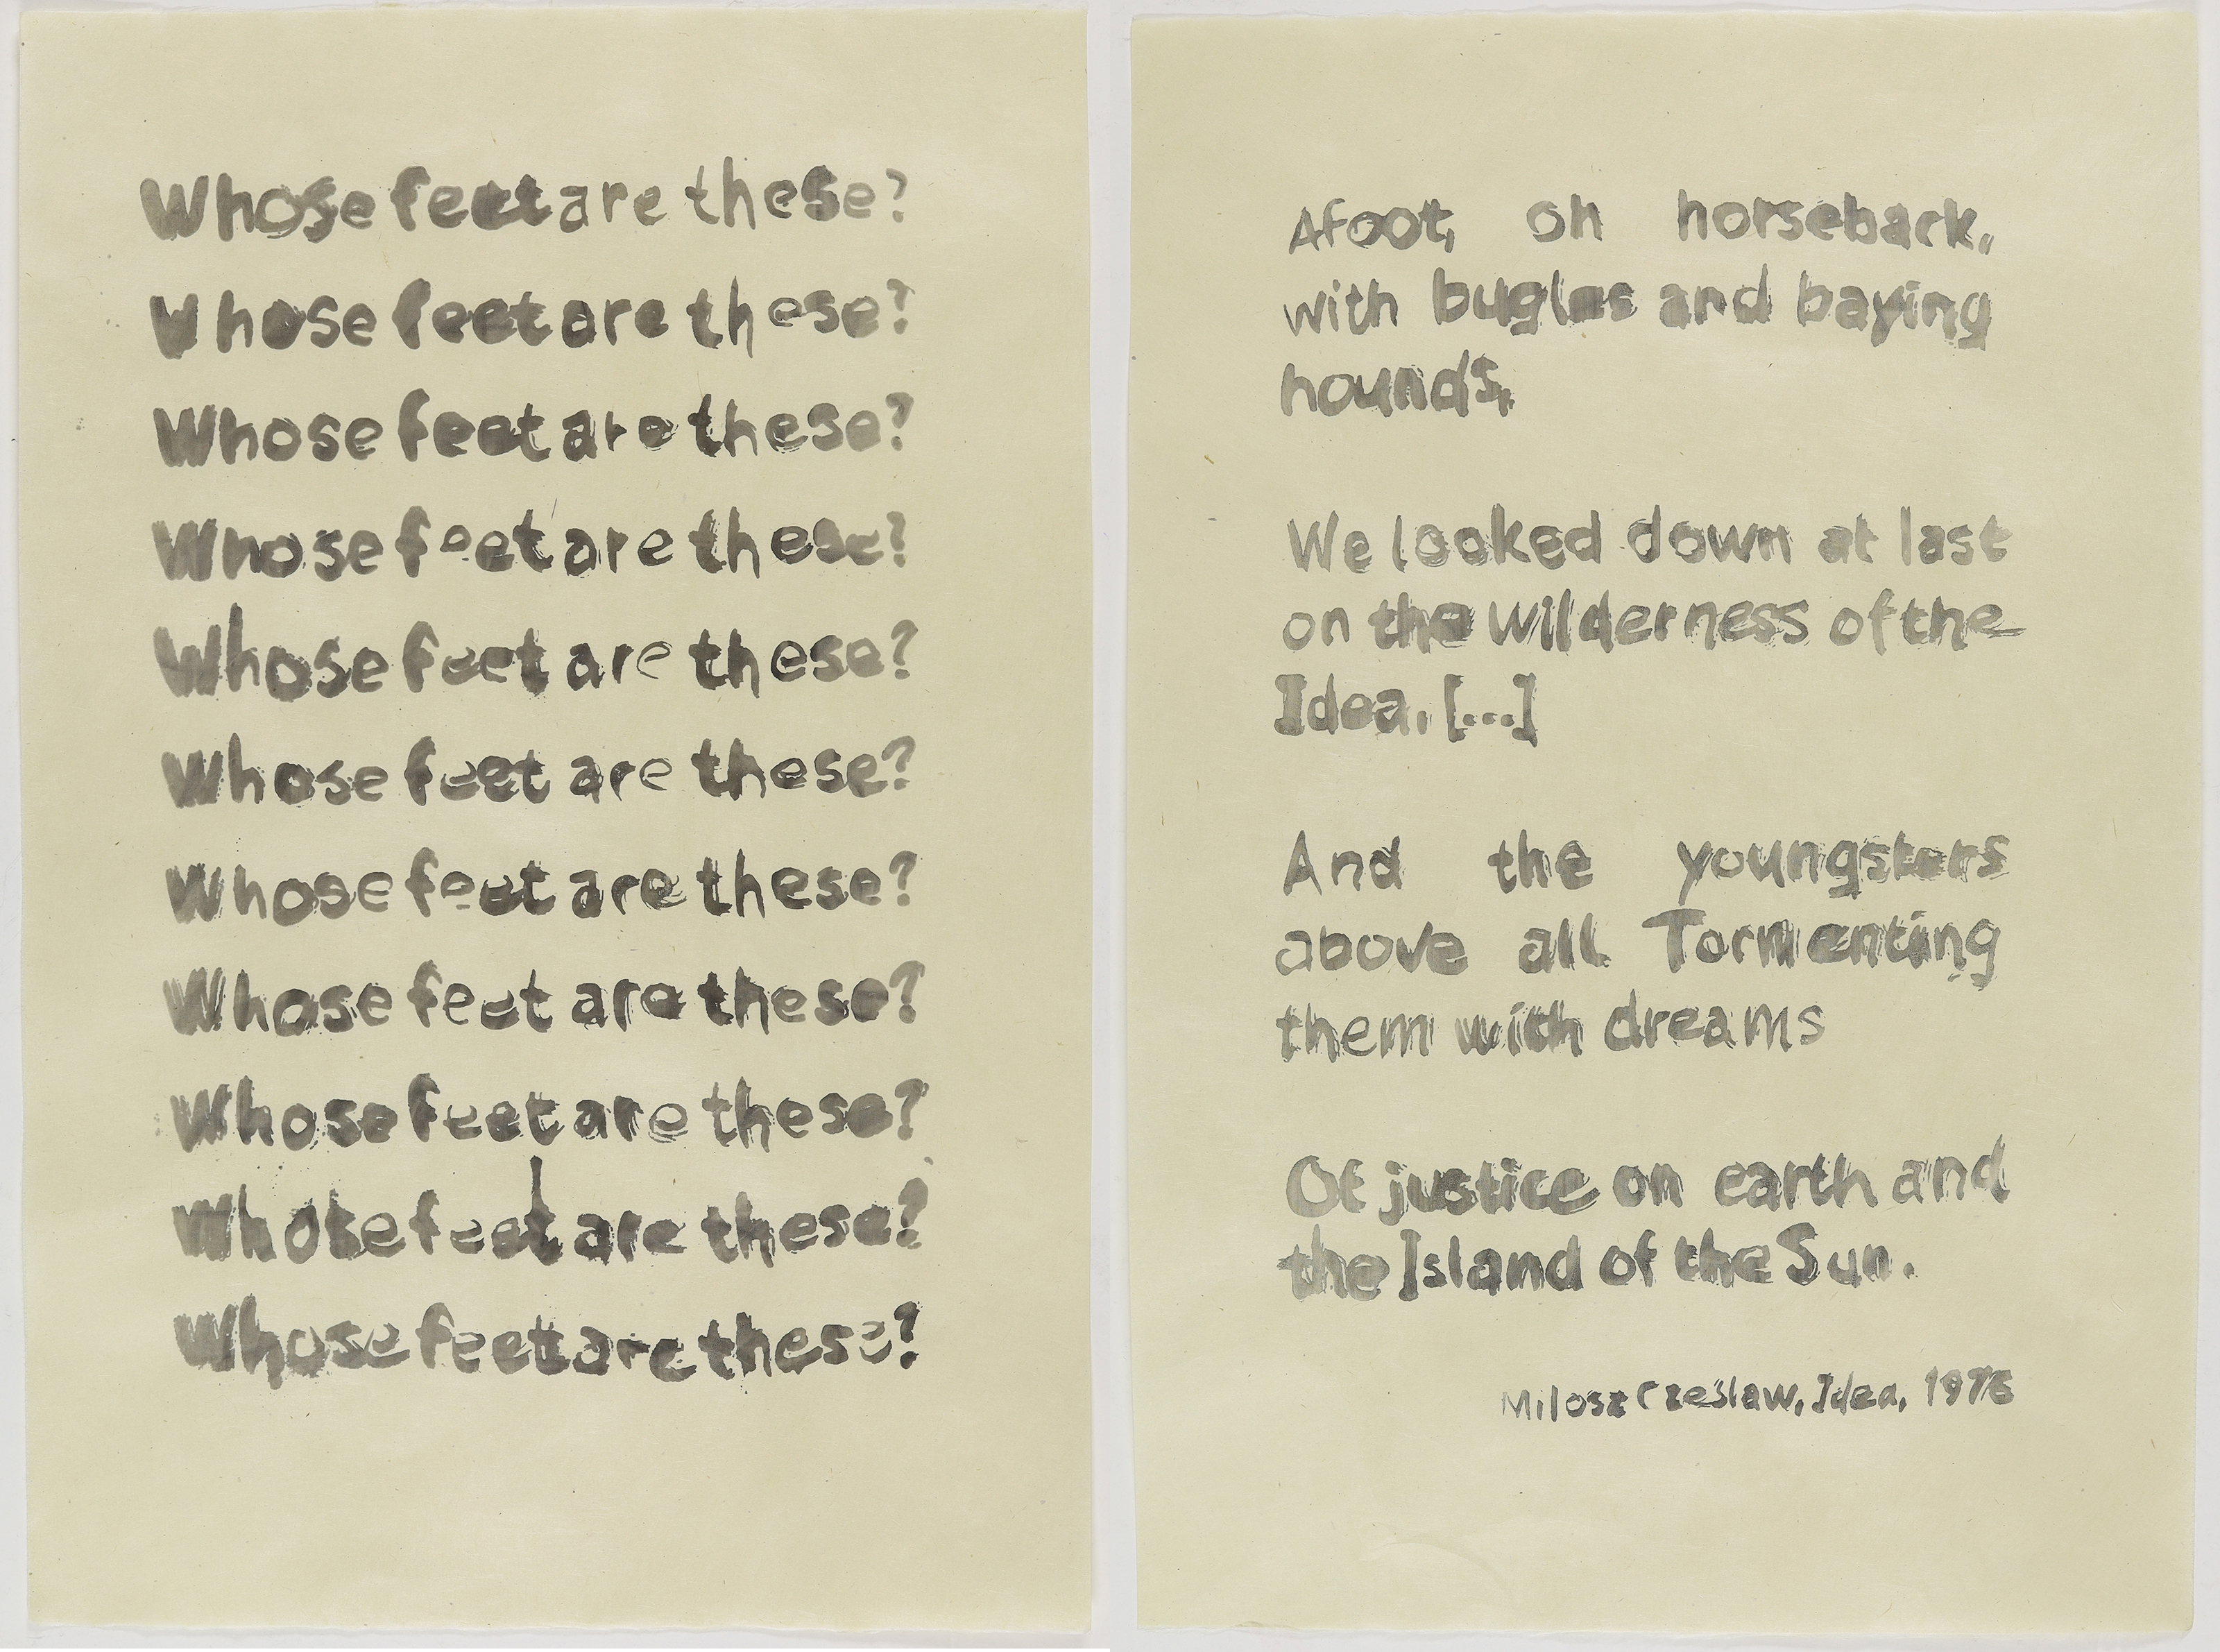 Whose feet are these?
Whose feet are these?
Whose feet are these?
Whose feet are these?
Whose feet are these?
Whose feet are these?
Whose feet are these?
Whose feet are these?
Whose feet are these?
Whose feet are these?
Whose feet are these?
Afoot, on horseback,
with bugles and baying
hounds,
We looked down at last
on the wilderness of the
Idea. [...]
And the youngsters
above all Tormenting
them with dreams
Of justice on earth and
the Island of the Sun.
Milosz Czeslaw, Idea, 1976